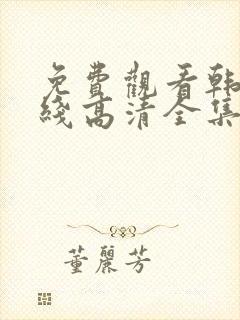 免費觀看韩
綫高清全集
董麗芳